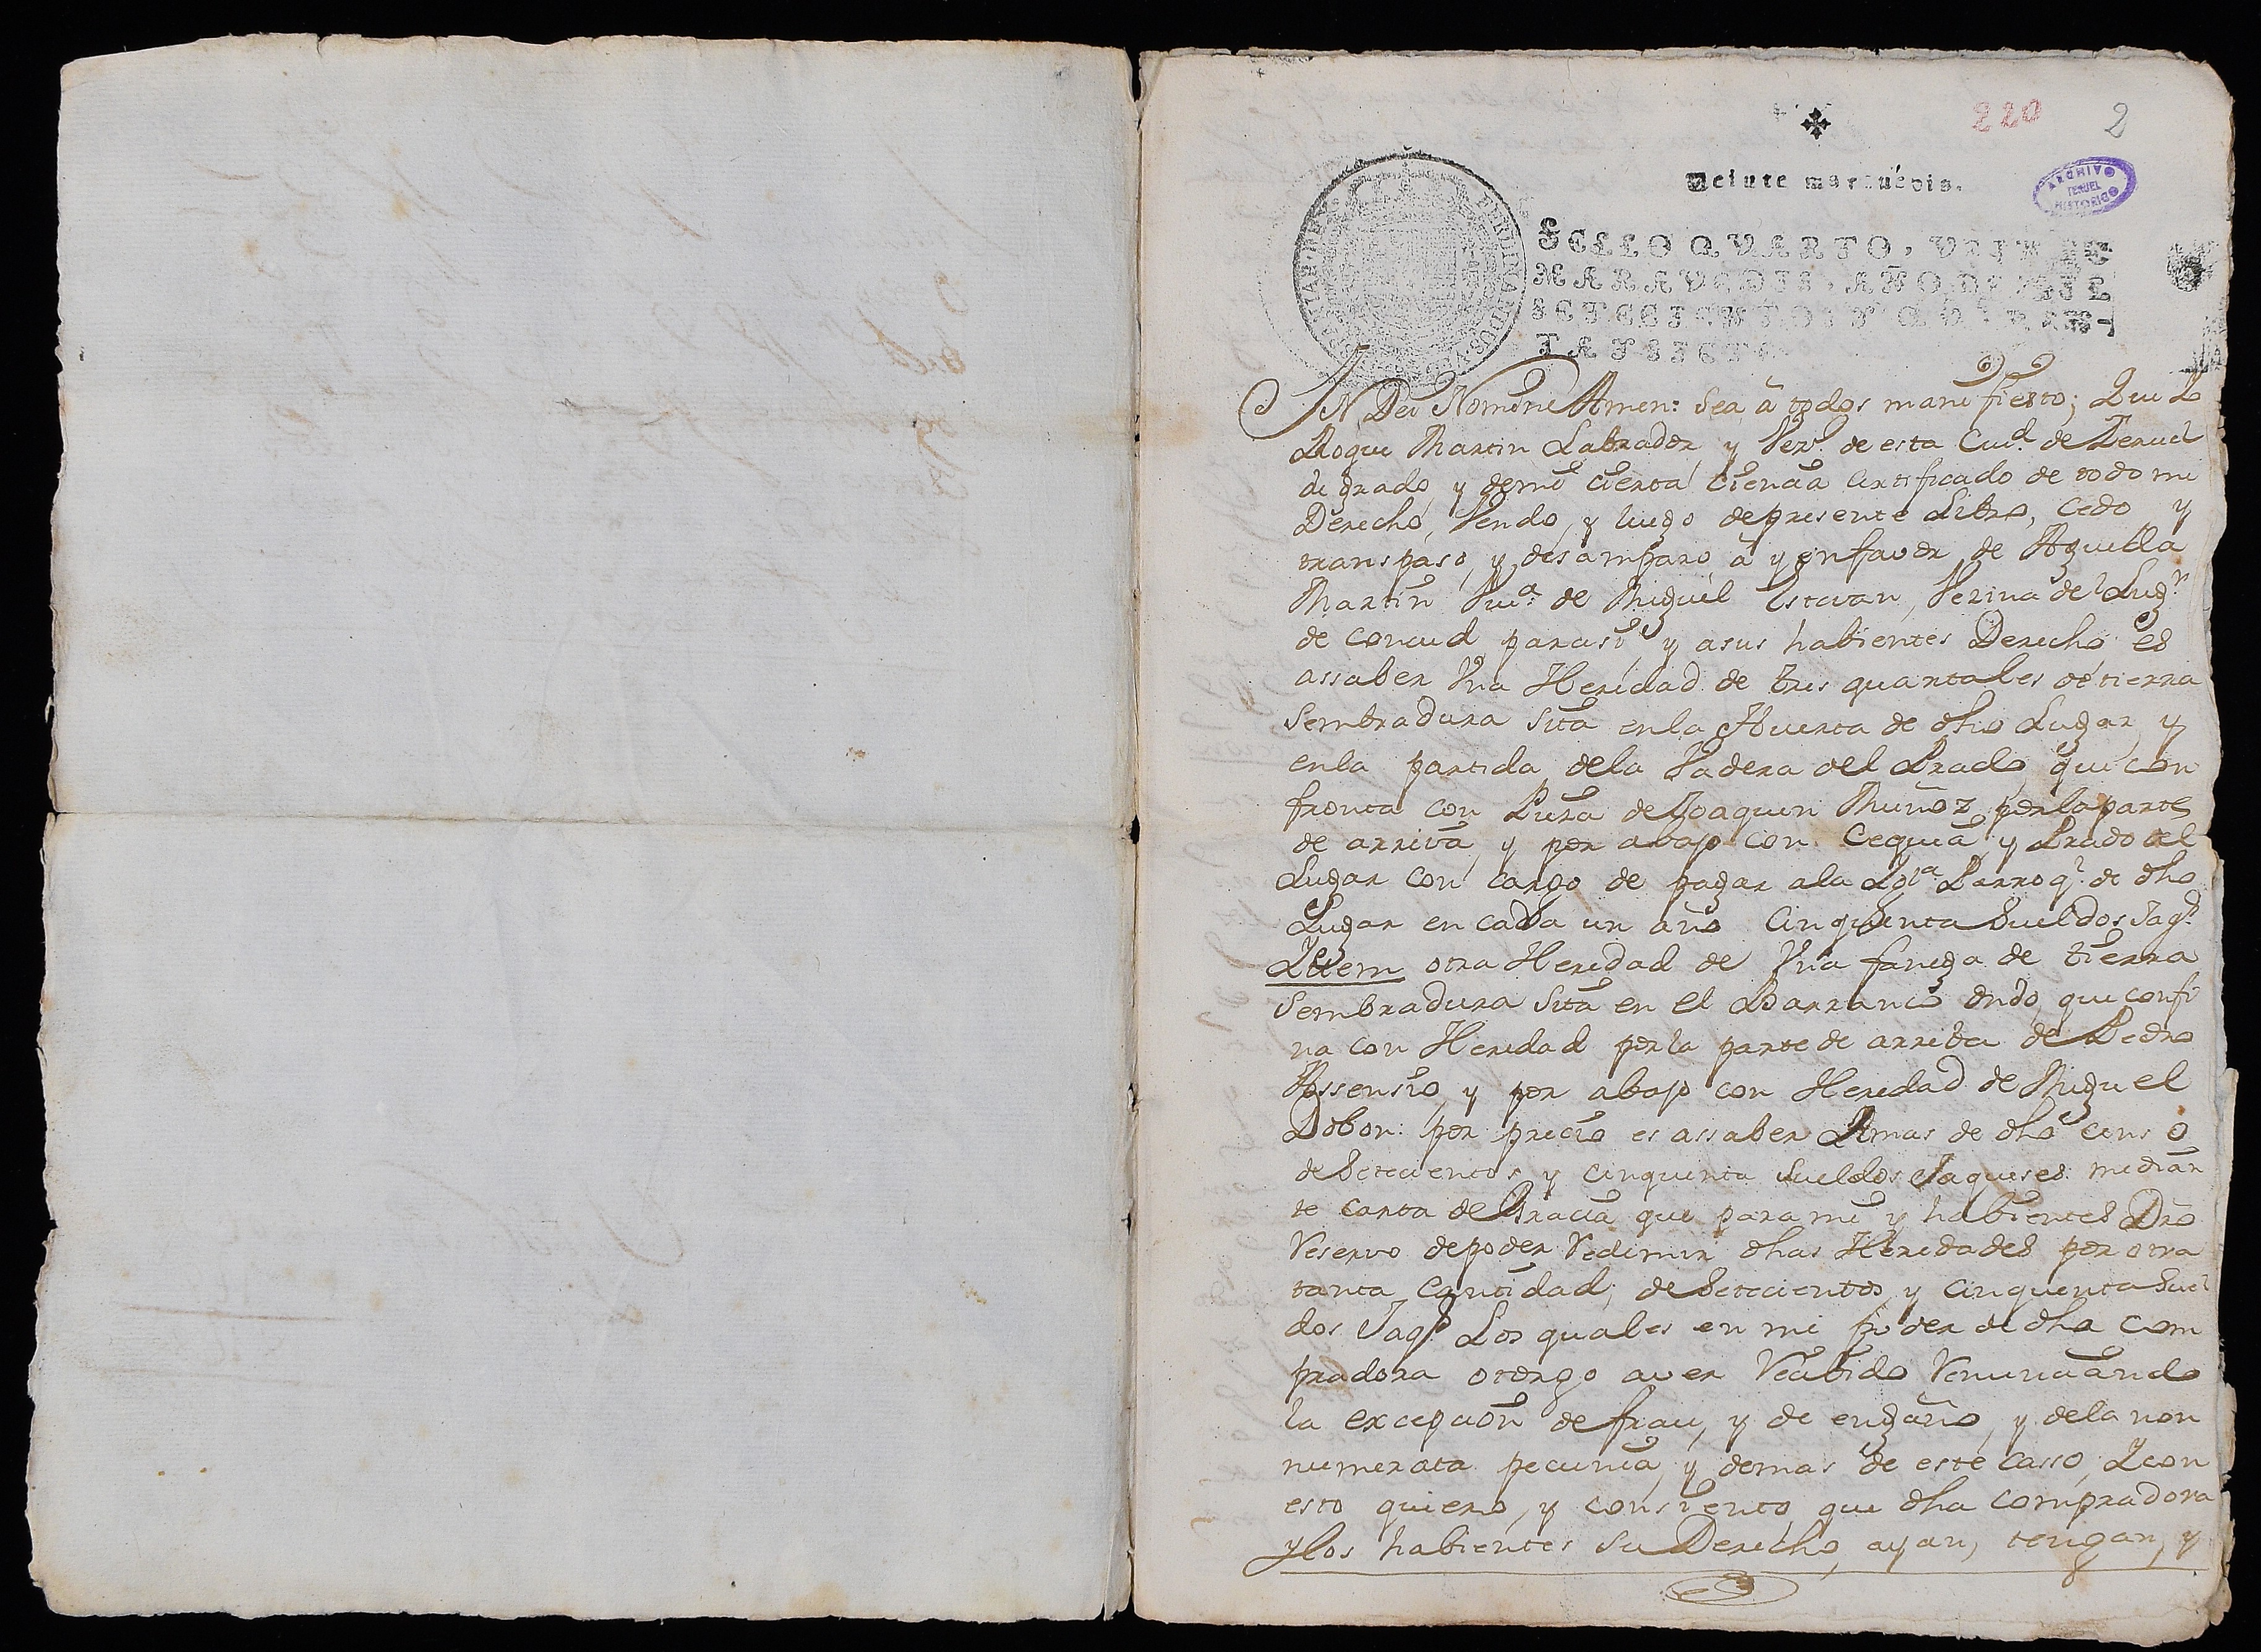 220 2
Veinte maravedis.
ARCHIVO
TERUEL
HISTORICO
SELLO QVARTO, VEINTE
MARAVEDIS, AÑO DE MIL
SETECIENTOS Y QVAREN-
TA Y SIETE
IN Dei Nomine Amen: Sea â todos manifiesto; Que Io
Roque Martin Labrador y Vezº. de esta Ciud. de Teruel
de grado, y demi cierta Ciencia certificado de todo mi
Derecho, Vendo, y luego depresente Libro, Cedo y
transpaso, y desamparo â y enfavor de Aguéda
Martin Viuª. de Miguel Estevan, Vezina del Lugr
de Concud parasi y asus habientes Derecho es
assaber Vna Heredad de tres quartales detierra
Sembradura Sita enla Huerta de dho Lugar y
enla partida dela Padera del Prado, que con
fronta con Pieza deJoaquin Muñoz porlaparte
de arriva, y por abajo con Cequia y Prado del
Lugar con cargo de pagar ala Iglª. Parroqˡ. de dho
Lugar en cada un año Cinquenta Sueldos Jaqˢ.
Ittem otra Heredad de Vna fanega de tierra
Sembradura Sita en el Barranco ondo, que confi
na con Heredad porla parte de arriba de Pedro
Assensio, y por abajo con Heredad de Miguel
Dobon: por precio es assaber Amas de dho censo
de Setecientos y cinquenta Sueldos Jaqueses median
te Carta de Gracia que para mi y habientes Dro
Reservo depoder Redimir dhas Heredades por otra
tanta Cantidad, de Setecientos y Cinquenta Suel
dos Jaqˢ. Los quales en mi poder de dha com
pradora otorgo aver Recibido Renunciando
la excepcion de frau, y de engaño, y dela non
numerata pecunia, y demas de este Casso, Icon
esto quiero, y consiento que dha compradora
ylos habientes su Derecho, ayan, tengan, y